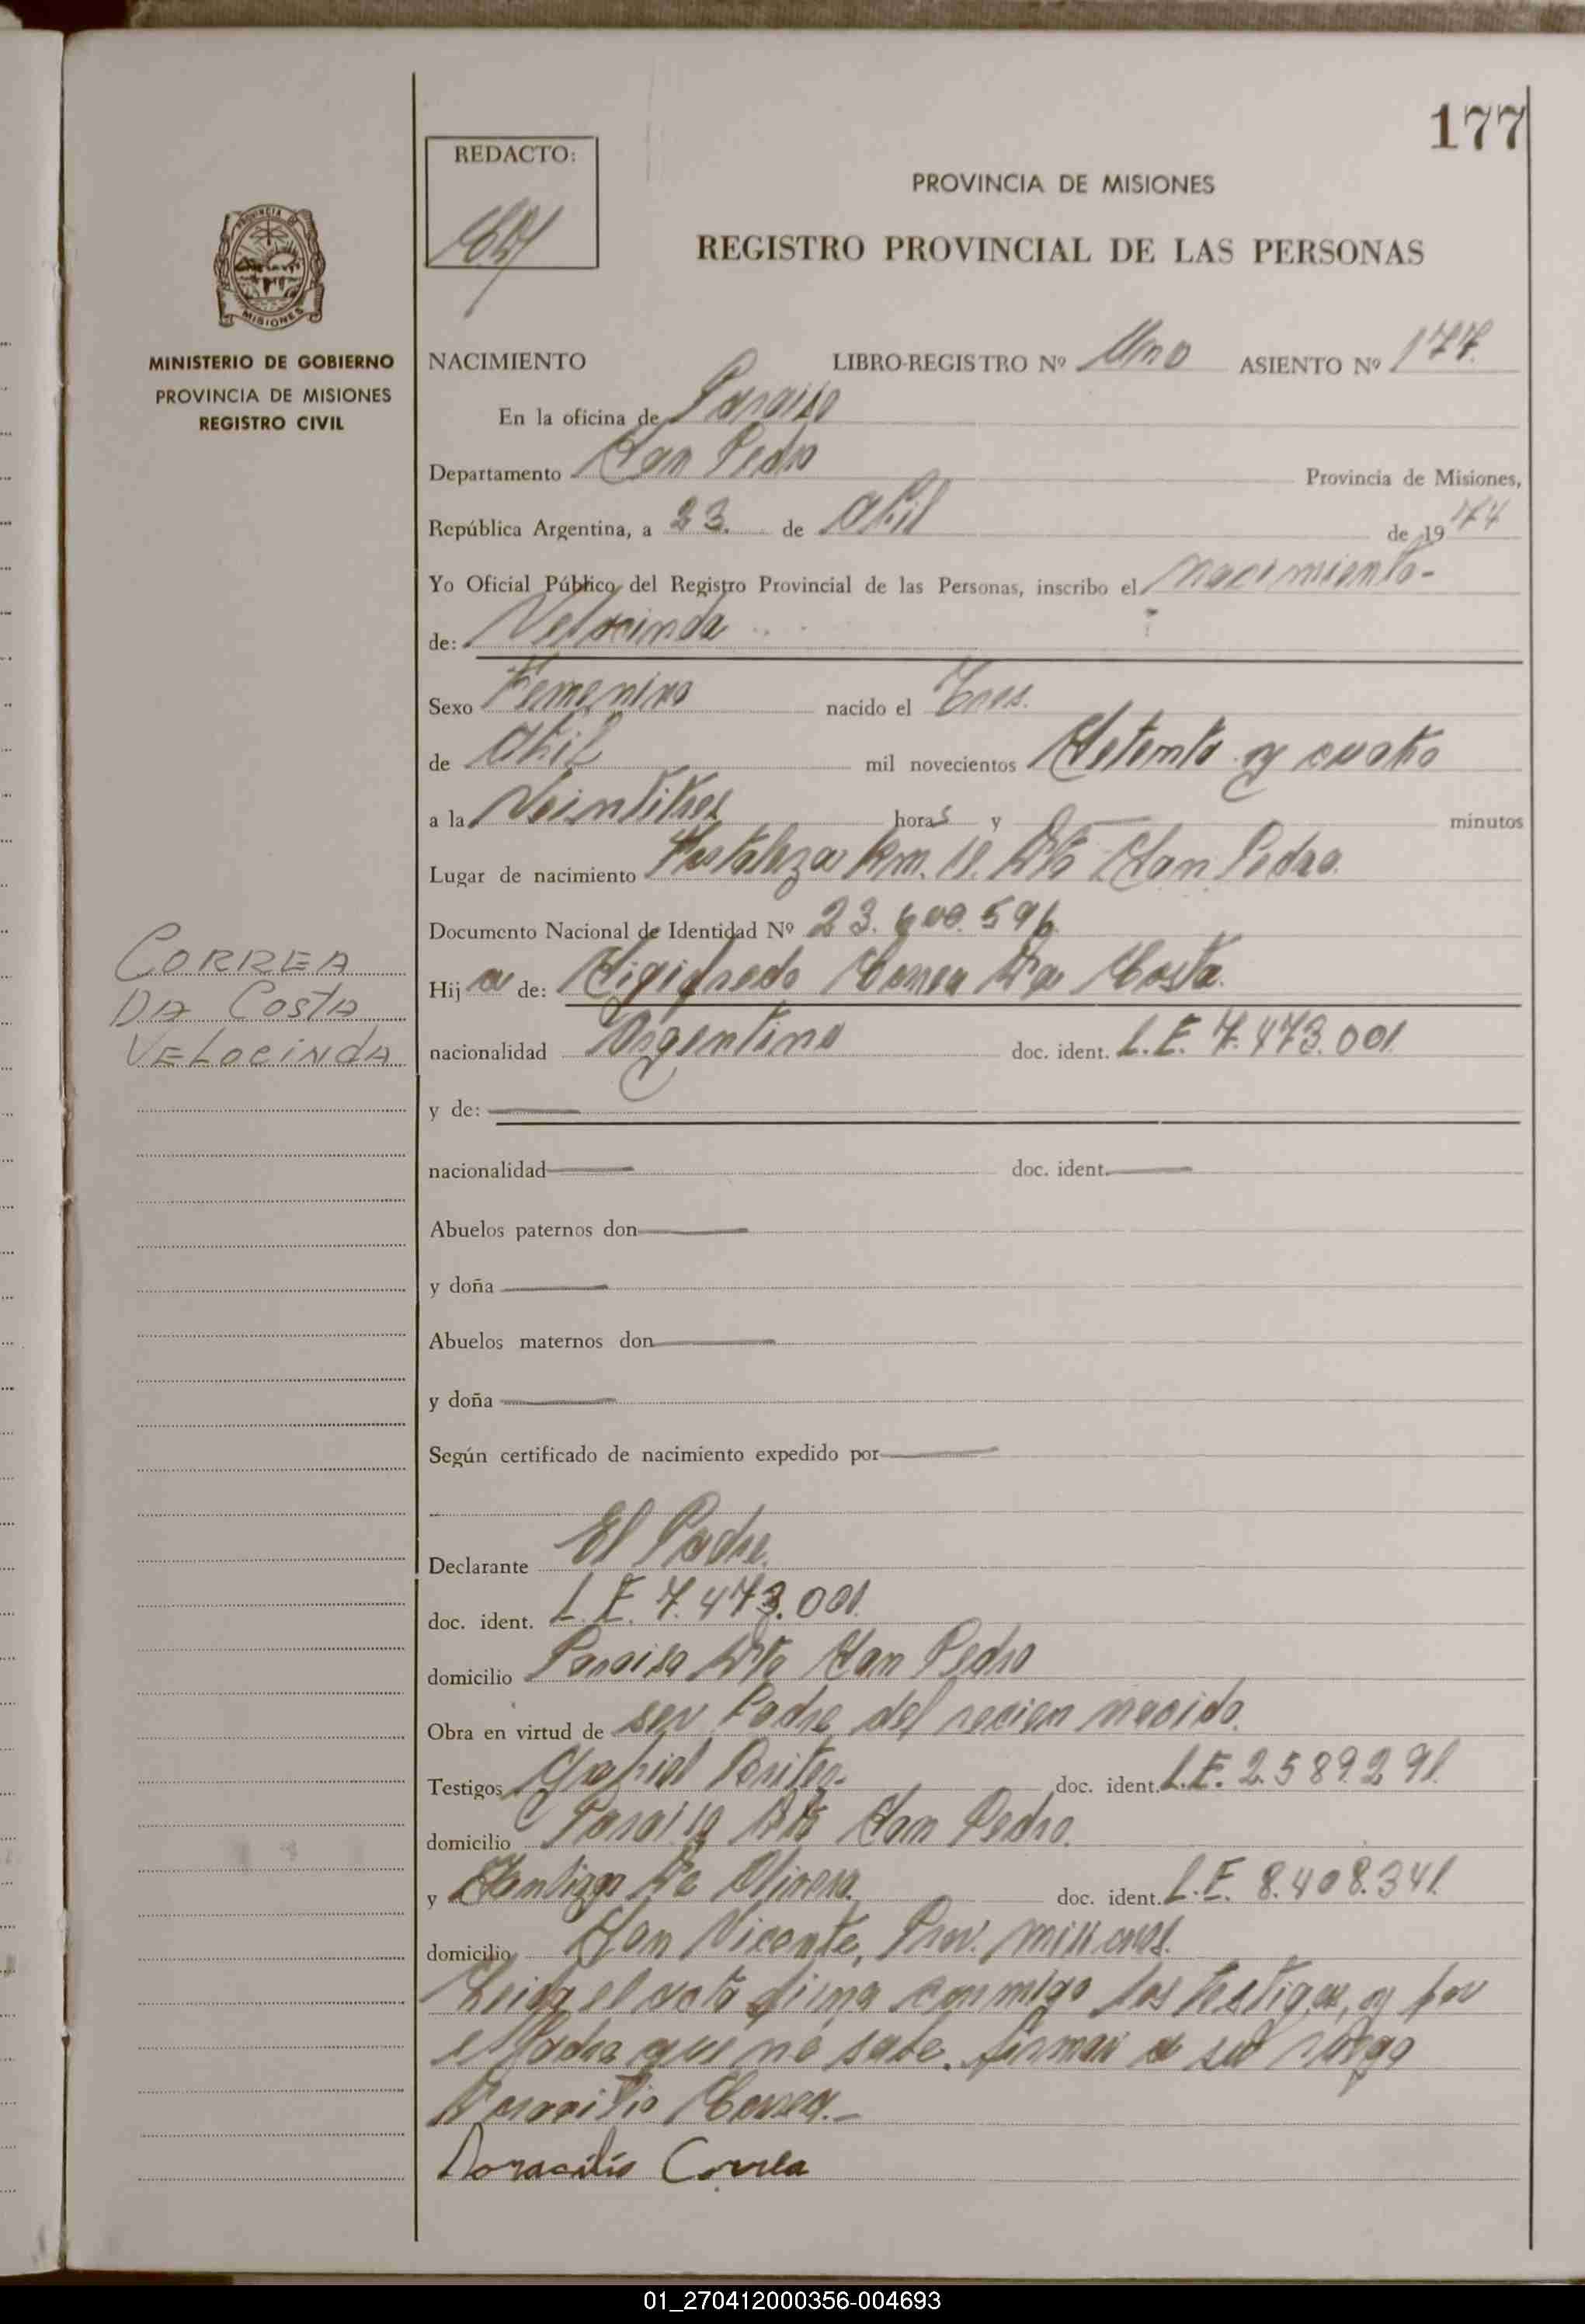 177
REDACTO:
PROVINCIA DE MISIONES
REGISTRO PROVINCIAL DE LAS PERSONAS
MISIONES
MINISTERIO DE GOBIERNO
PROVINCIA DE MISIONES
REGISTRO CIVIL
NACIMIENTO LIBRO-REGISTRO Nº Uno ASIENTO Nº 177.
En la oficina de Paraiso
Departamento San Pedro Provincia de Misiones,
República Argentina, a 23. de Abril de 1974
Yo Oficial Público del Registro Provincial de las Personas, inscribo el nacimiento-
de: Velocinda
Sexo Femenino nacido el Tres.
de Abril mil novecientos Setenta y cuatro
a la Veintitres horas y minutos
Lugar de nacimiento Fortaleza Km. Dto San Pedro.
Documento Nacional de Identidad Nº 23.600.596
Hija de: Sigifredo Correa Da Costa.
CORREA
DA COSTA
VELOCINDA
nacionalidad Argentino doc. ident. L.E. 7.473.001
y de:
nacionalidad doc. ident.
Abuelos paternos don
y doña
Abuelos maternos don
y doña
Según certificado de nacimiento expedido por
Declarante El Padre.
doc. ident. L.E. 7.473.001.
domicilio Paraiso Dto San Pedro
Obra en virtud de ser Padre del recien nacido.
Testigos Gabriel Britez. doc. ident. L.E. 2.589.291.
domicilio Paraiso Dto San Pedro.
y Santiago De Olivera. doc. ident. L.E. 8.408.341.
domicilio San Vicente, Prov. misiones.
Leida el acta firma conmigo los testigos, y por
el Padre que no sabe firmar a su ruego
Doracilio Correa.-
Doracilio Correa
01_270412000356-004693